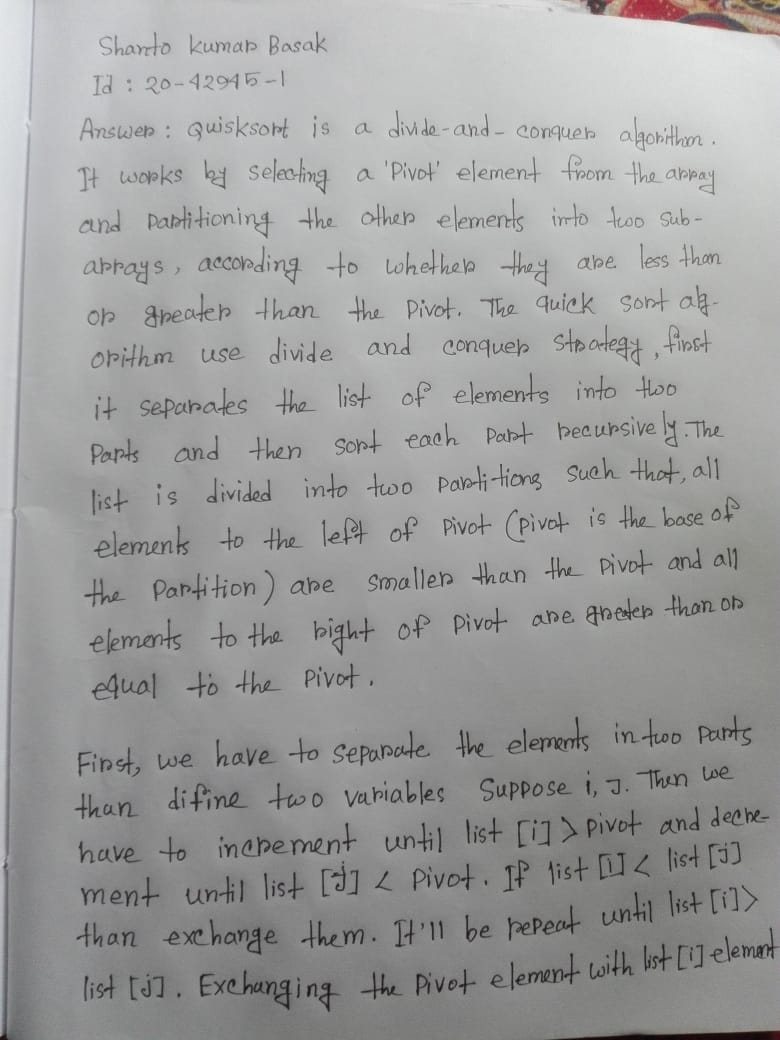 Shanto Kumar Basak
Id : 20-42945-1
Answer : Quisksort is a divide-and-conquer algorithm.
It works by selecting a 'Pivot' element from the array
and Partitioning the other elements into two sub-
arrays, according to whether they are less than
or greater than the Pivot. The quick sort alg-
orithm use divide and conquer strategy, first
it separates the list of elements into two
Parts and then sort each Part recursively. The
list is divided into two Partitions such that, all
elements to the left of Pivot (pivot is the base of
the Partition) are smaller than the Pivot and all
elements to the right of Pivot are greater than or
equal to the Pivot.
First, we have to separate the elements in two Parts
than difine two variables Suppose i, J. Then we
have to increment until list [i] > pivot and decre-
ment until list [j] < Pivot. If list [i] < list [j]
than exchange them. It'll be repeat until list [i] >
list [j]. Exchanging the Pivot element with list [i] element